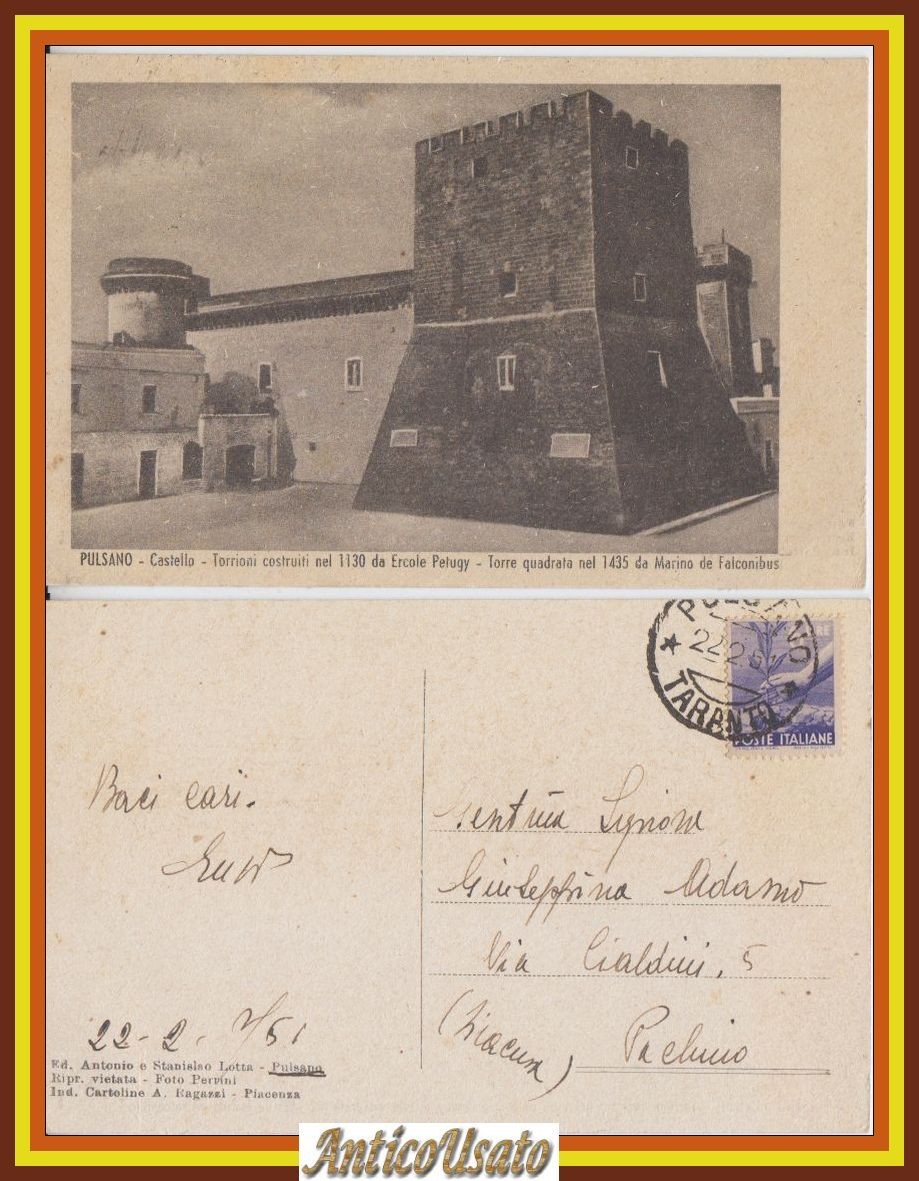 PULSANO - Castello - Torrioni costruiti nel 1130 da Ercole Petugy - Torre quadrata nel 1435 da Marino de Falconibus
PULSANO
22.2.51
TARANTO
POSTE ITALIANE
Baci cari.
22-2-951
Gentma Signora
Giuseppina Adamo
Via Cialdini, 5
(Siracusa) Pachino
Ed. Antonio e Stanislao Lotta - Pulsano
Ripr. vietata - Foto Pervini
Ind. Cartoline A. Ragazzi - Piacenza
AnticoUsato